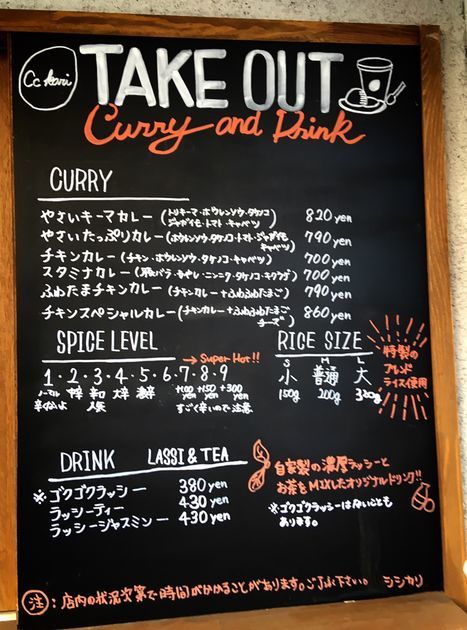 Cc Kari
TAKE OUT
Curry and Drink
CURRY
やさいキーマカレー (トリキーマ・ホウレンソウ・タケノコ ジャガイモ・トマト・キャベツ) 820 yen
やさいたっぷりカレー (ホウレンソウ・タケノコ・トマト・ジャガイモ キャベツ) 790 yen
チキンカレー (チキン・ホウレンソウ・タケノコ・キャベツ) 700 yen
スタミナカレー (豚バラ・もやし・ニンニク・タケノコ・キクラゲ) 700 yen
ふわたまチキンカレー (チキンカレー+ふわふわたまご) 790 yen
チキンスペシャルカレー (チキンカレー+ふわふわたまご チーズ) 860 yen
SPICE LEVEL
→ Super Hot!!
1・2・3・4・5・6・7・8・9
ノーマル 中辛 辛口 大辛 激辛 +100 yen +150 yen +300 yen
辛くないよ 人気 すごく辛いので注意
RICE SIZE
S M L
小 普通 大
150g 200g 320g
特製の
ブレンド
ライス使用
DRINK LASSI & TEA
※ゴクゴクラッシー 380 yen
ラッシーティー 430 yen
ラッシージャスミンー 430 yen
自家製の濃厚ラッシーと
お茶をMIXしたオリジナルドリンク!!
※ゴクゴクラッシーはないことも
あります。
注:店内の状況次第で時間がかかることがあります。ご了承下さい。 シシカリ